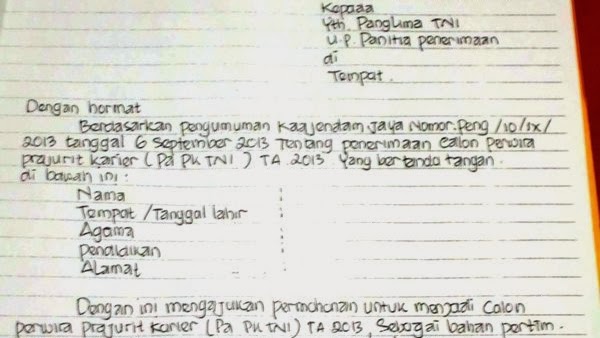 Kepada
Yth. Panglima TNI
u.p. Panitia penerimaan
di
Tempat.
Dengan hormat
Berdasarkan pengumuman Kaajendam Jaya Nomor.Peng /10/IX/
2013 tanggal 6 September 2013 Tentang penerimaan Calon Perwira
prajurit karier (Pa PK TNI) TA.2013 Yang bertanda tangan.
di bawah ini :
Nama :
Tempat /Tanggal lahir :
Agama :
Pendidikan :
ALamat :
Dengan ini mengajukan permohonan untuk menjadi Calon
perwira prajurit karier (Pa PK TNI) TA 2013, Sebagai bahan pertim.